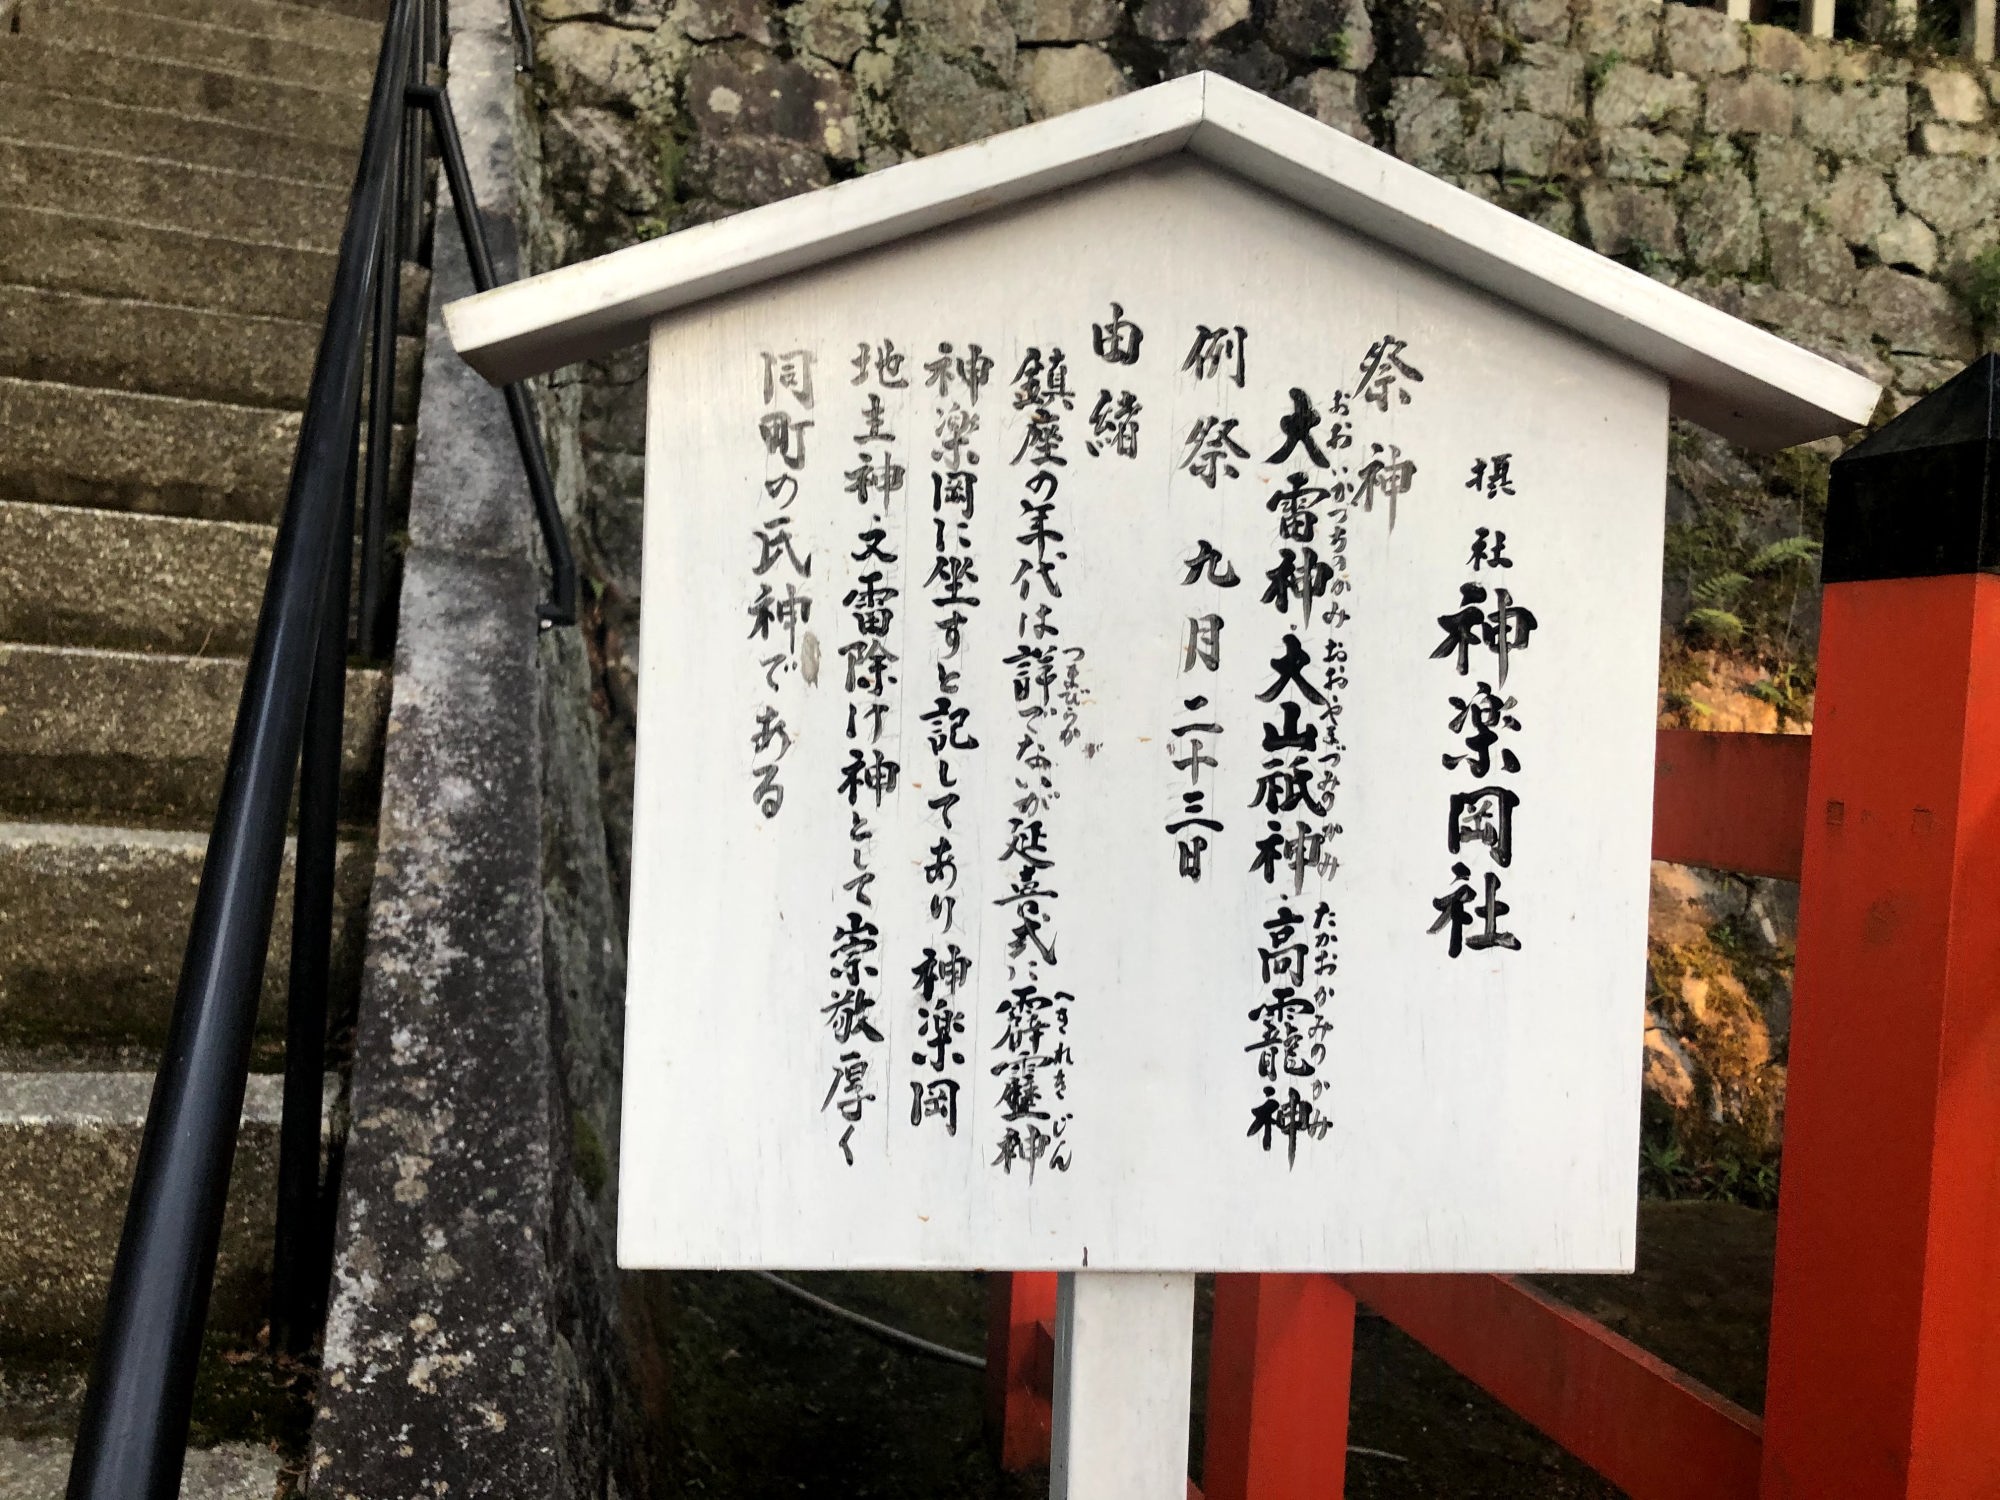 摂社 神楽岡社
祭神
おおいかづちのかみ おおやまづみのかみ たかおかみのかみ
大雷神・大山祇神・高龗神
例祭 九月二十三日
由緒
つまびらか へきれきじん
鎮座の年代は詳でないが延喜式に霹靂神
神楽岡に坐すと記してあり神楽岡
地主神・又雷除け神として崇敬厚く
同町の氏神である